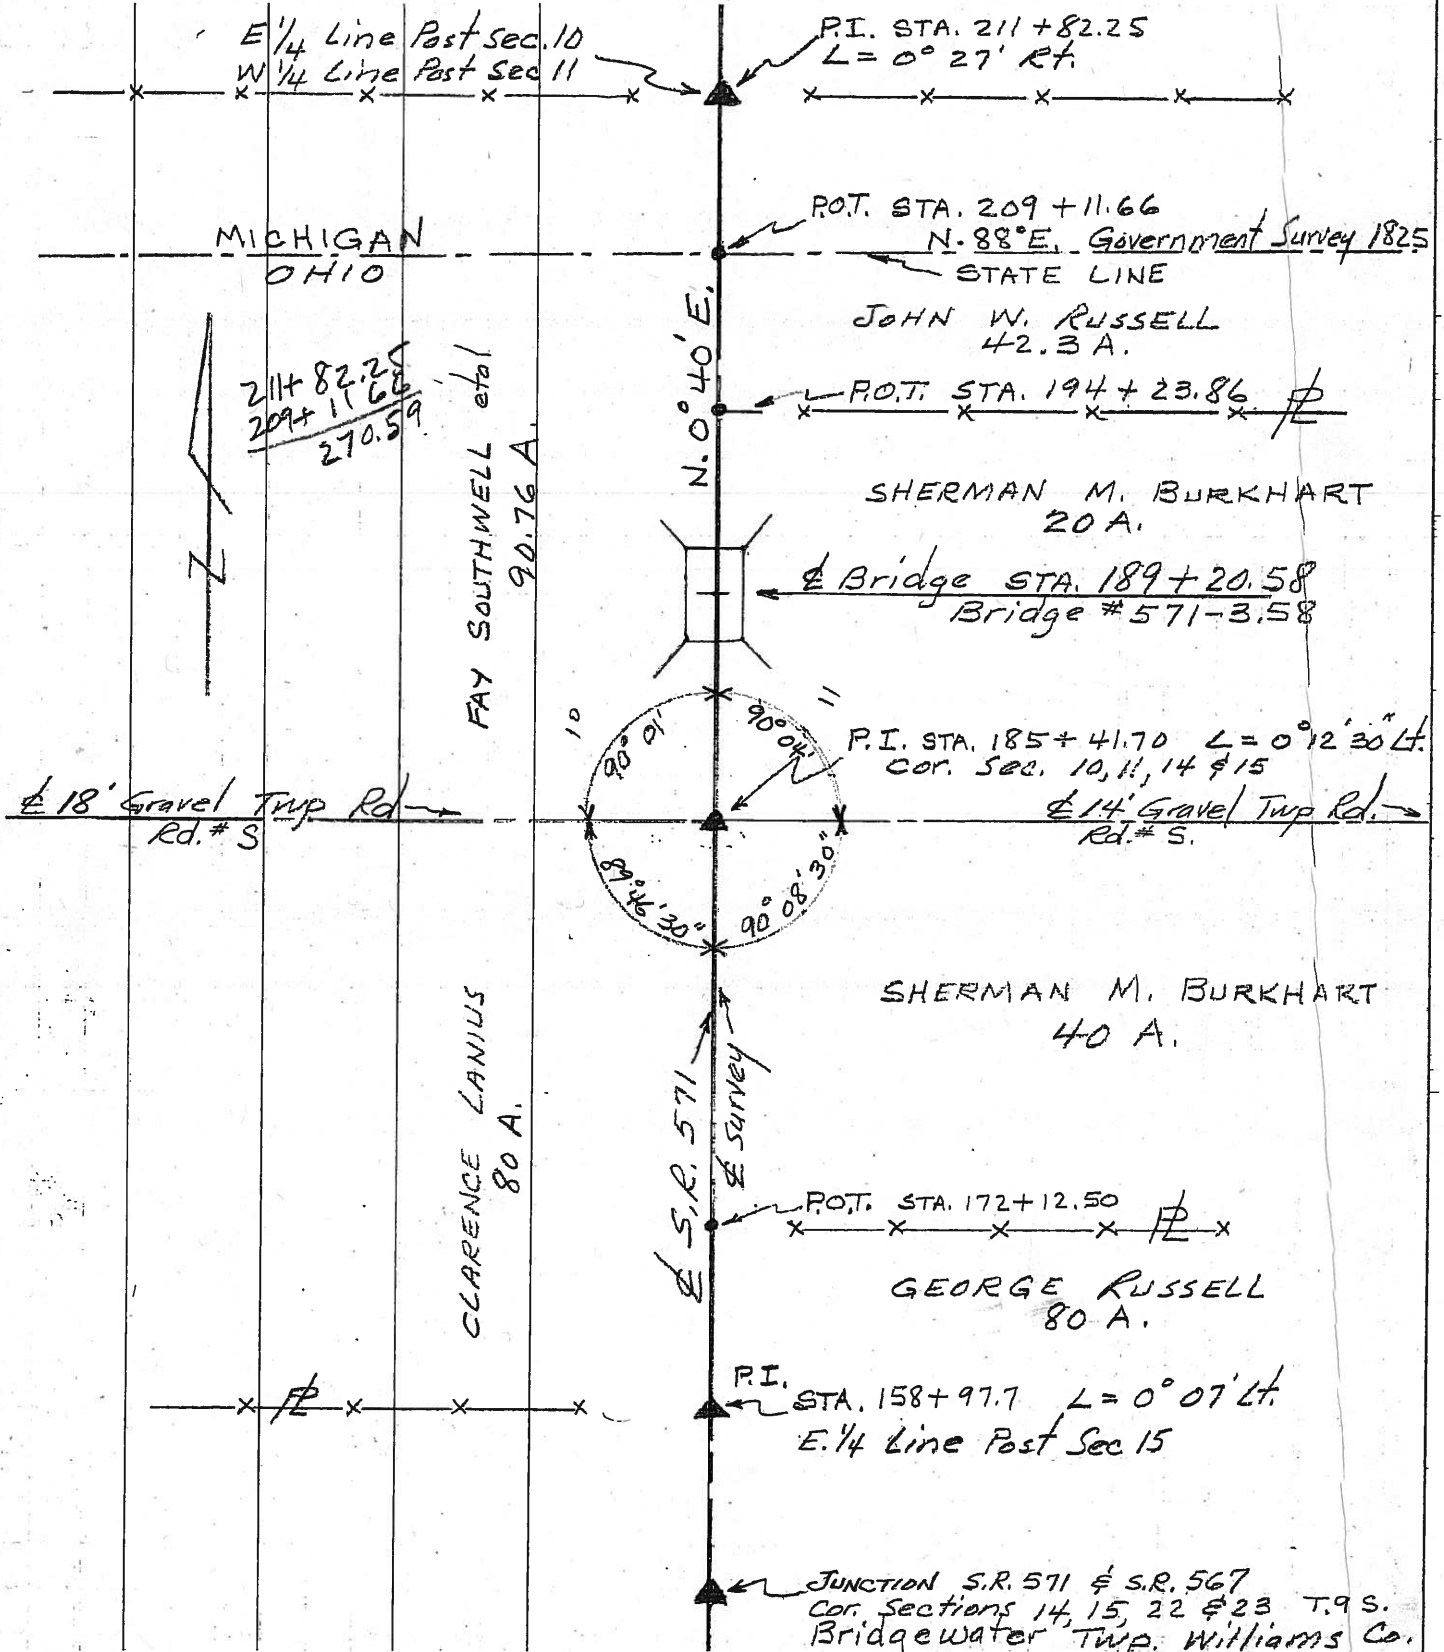 E 1/4 Line Post Sec. 10
W 1/4 Line Post Sec 11
P.I. STA. 211 + 82.25
L = 0° 27' Rt.
P.O.T. STA. 209 + 11.66
N. 88° E. Government Survey 1825
MICHIGAN
OHIO
STATE LINE
JOHN W. RUSSELL
42.3 A.
N. 0° 40' E.
211+ 82.25
209+ 11 66
270.59
N
FAY SOUTHWELL etal
90.76 A.
P.O.T. STA. 194 + 23.86 PL
SHERMAN M. BURKHART
20 A.
℄ Bridge STA. 189 + 20.58
Bridge # 571-3.58
10
11
90° 01'
90° 04'
P.I. STA. 185 + 41.70 L = 0° 12' 30" Lt.
Cor. Sec. 10, 11, 14 & 15
℄ 18' Gravel Twp Rd
Rd. # S
℄ 14' Gravel Twp Rd.
Rd. # S.
89° 46' 30"
90° 08' 30"
SHERMAN M. BURKHART
40 A.
CLARENCE LANIUS
80 A.
℄ S.R. 571
℄ Survey
P.O.T. STA. 172+12.50 PL
GEORGE RUSSELL
80 A.
PL
P.I.
STA. 158+97.7 L = 0° 07' Lt.
E. 1/4 Line Post Sec 15
JUNCTION S.R. 571 & S.R. 567
Cor. Sections 14, 15, 22 & 23 T.9 S.
Bridgewater Twp. Williams Co.